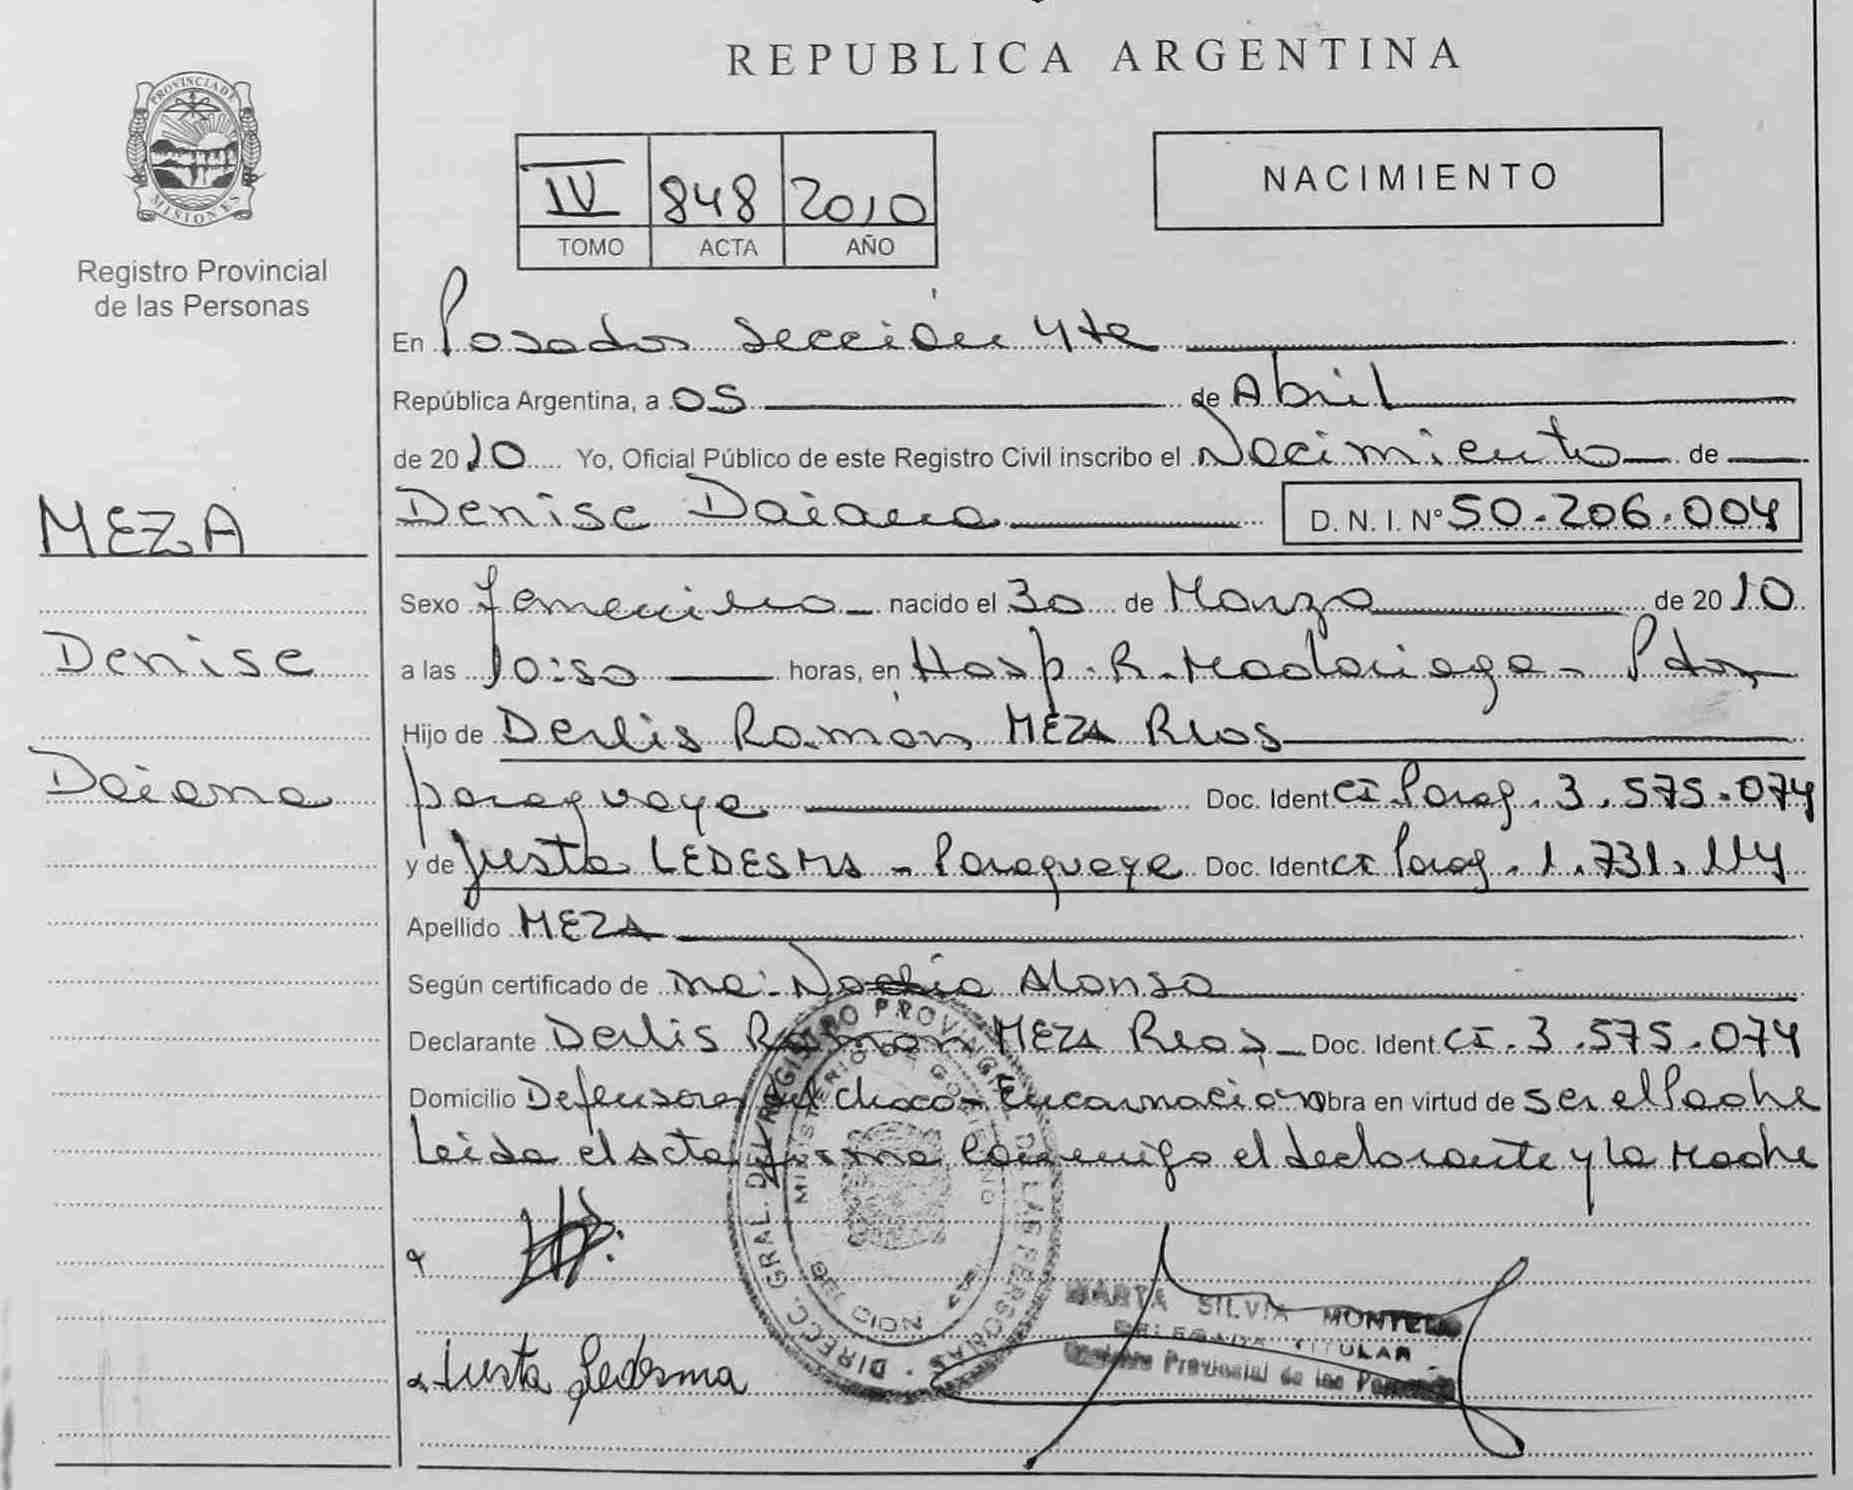 REPUBLICA ARGENTINA
PROVINCIA DE MISIONES
Registro Provincial
de las Personas
IV 848 2010
TOMO ACTA AÑO
NACIMIENTO
En Posadas Sección 4ta
República Argentina, a 05 de Abril
de 2010 Yo, Oficial Público de este Registro Civil inscribo el Nacimiento de
Denise Daiana D. N. I. Nº 50.206.004
MEZA
Denise
Daiana
Sexo femenino nacido el 30 de Marzo de 2010
a las 10:50 horas, en Hosp. R. Madariaga - Pdas
Hijo de Derlis Ramón MEZA Rios
paraguaya Doc. Ident CI. Parag. 3.575.074
y de Justa LEDESMA - Paraguaya Doc. Ident CI Parag. 1.731.114
Apellido MEZA
Según certificado de Alonso
Declarante Derlis Ramón MEZA Rios - Doc. Ident. CI. 3.575.074
Domicilio Defensores del chaco - Encarnación Obra en virtud de ser el Padre
Leida el acta firma conmigo el declarante y la Madre
DIRECC. GRAL. DEL REGISTRO PROVINCIAL DE LAS PERSONAS
MINISTERIO DE GOBIERNO
MARTA SILVIA
DELEGADA TITULAR
Registro Provincial de las Personas
Justa Ledesma